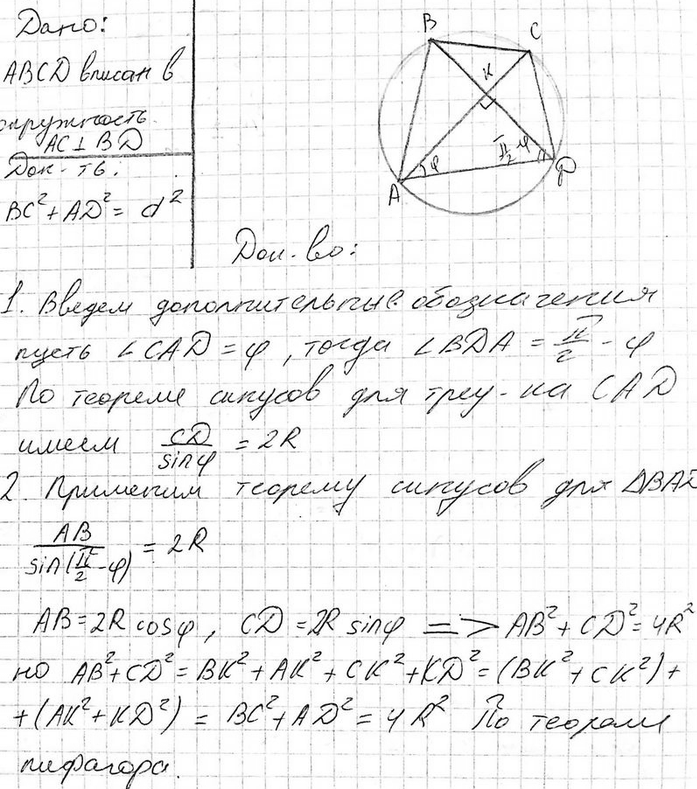 Дано:
ABCD вписан в
окружность.
AC ⊥ BD
Док-ть.
BC² + AD² = d²
B
C
K
φ
π/2 - φ
A
D
Док-во:
1. Введем дополнительные обозначения
пусть ∠CAD = φ, тогда ∠BDA = π/2 - φ
По теореме синусов для треу-ка CAD
имеем CD/sinφ = 2R
2. Применим теорему синусов для ΔBAD
AB/sin(π/2 - φ) = 2R
AB = 2R cosφ, CD = 2R sinφ => AB² + CD² = 4R²
но AB² + CD² = BK² + AK² + CK² + KD² = (BK² + CK²) +
+ (AK² + KD²) = BC² + AD² = 4R² По теореме
пифагора.